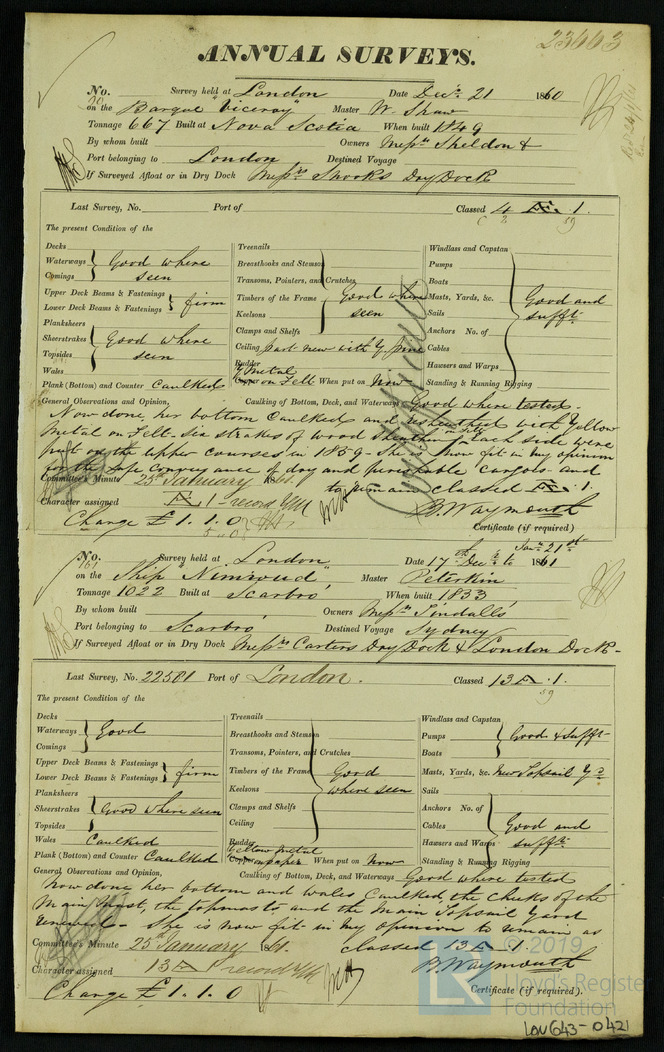 23663
ANNUAL SURVEYS.
No. 70 Survey held at London Date Decr 21 1860
on the Barque "Viceroy" Master W. Shaw
Tonnage 667 Built at Nova Scotia When built 1849
By whom built Owners Messrs Sheldon &
Port belonging to London Destined Voyage
If Surveyed Afloat or in Dry Dock Messrs Shooks Dry Dock
Last Survey, No. Port of Classed 4 Æ. 1.
59
The present Condition of the
Decks
Waterways
Comings
Good where seen
Upper Deck Beams & Fastenings
Lower Deck Beams & Fastenings
firm
Planksheers
Sheerstrakes
Topsides
Good where seen
Wales
Plank (Bottom) and Counter Caulked
Treenails
Breasthooks and Stemson
Transoms, Pointers, and Crutches
Timbers of the Frame
Keelsons
Good where seen
Clamps and Shelfs
Ceiling part new with Y pine
Rudder
Y Metal
Copper on Felt When put on Now
Windlass and Capstan
Pumps
Boats
Masts, Yards, &c.
Sails
Anchors No. of
Cables
Hawsers and Warps
Standing & Running Rigging
Good and sufft
General Observations and Opinion, Caulking of Bottom, Deck, and Waterways Good where tested.
Now done, her bottom Caulked and resheathed with Yellow
Metal on Felt - six strakes of wood sheathing on Felt each side were
put on the upper courses in 1859 - She is now fit in my opinion
for the safe conveyance of dry and perishable cargoes and
to remain classed Æ. 1.
Committee's Minute 25 January 1861.
Character assigned Æ 1 - record YM
B. Waymouth
Change £ 1. 1. 0
Certificate (if required)
No. 161 Survey held at London Date 17th Decr to Jany 21st 1861
on the Ship "Nimroud" Master Peterkin
Tonnage 1022 Built at Scarbro' When built 1833
By whom built Owners Messrs Tindalls'
Port belonging to Scarbro' Destined Voyage Sydney
If Surveyed Afloat or in Dry Dock Messrs Carters Dry Dock & London Dock -
Last Survey, No. 22581 Port of London. Classed 13 A. 1.
59
The present Condition of the
Decks
Waterways
Comings
Good
Upper Deck Beams & Fastenings
Lower Deck Beams & Fastenings
firm
Planksheers
Sheerstrakes
Topsides
Good where seen
Wales Caulked
Plank (Bottom) and Counter Caulked
Treenails
Breasthooks and Stemson
Transoms, Pointers, and Crutches
Timbers of the Frame
Keelsons
Good where seen
Clamps and Shelfs
Ceiling
Rudder
Yellow Metal
Copper on paper When put on Now
Windlass and Capstan
Pumps
Boats
Good & Sufft
Masts, Yards, &c. New Topsail Yd
Sails
Anchors No. of
Cables
Hawsers and Warps
Standing & Running Rigging
Good and sufft
General Observations and Opinion, Caulking of Bottom, Deck, and Waterways Good where tested
Now done, her bottom and wales Caulked, the cheeks of the
Main Mast, the topmasts and the Main Topsail Yard
renewed - She is now fit in my opinion to remain as
classed 13 A. 1.
Committee's Minute 25 January 1861.
Character assigned 13 A 1 record YM
B. Waymouth
Change £ 1. 1. 0
Certificate (if required).
© 2019
Lloyd's Register
Foundation
LON643-0421